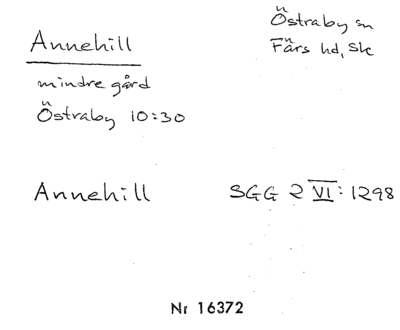 Annehill
Östraby sn
Färs hd, Sk
mindre gård
Östraby 10:30
Annehill
SGG 2 VI: 1298
Nr 16372